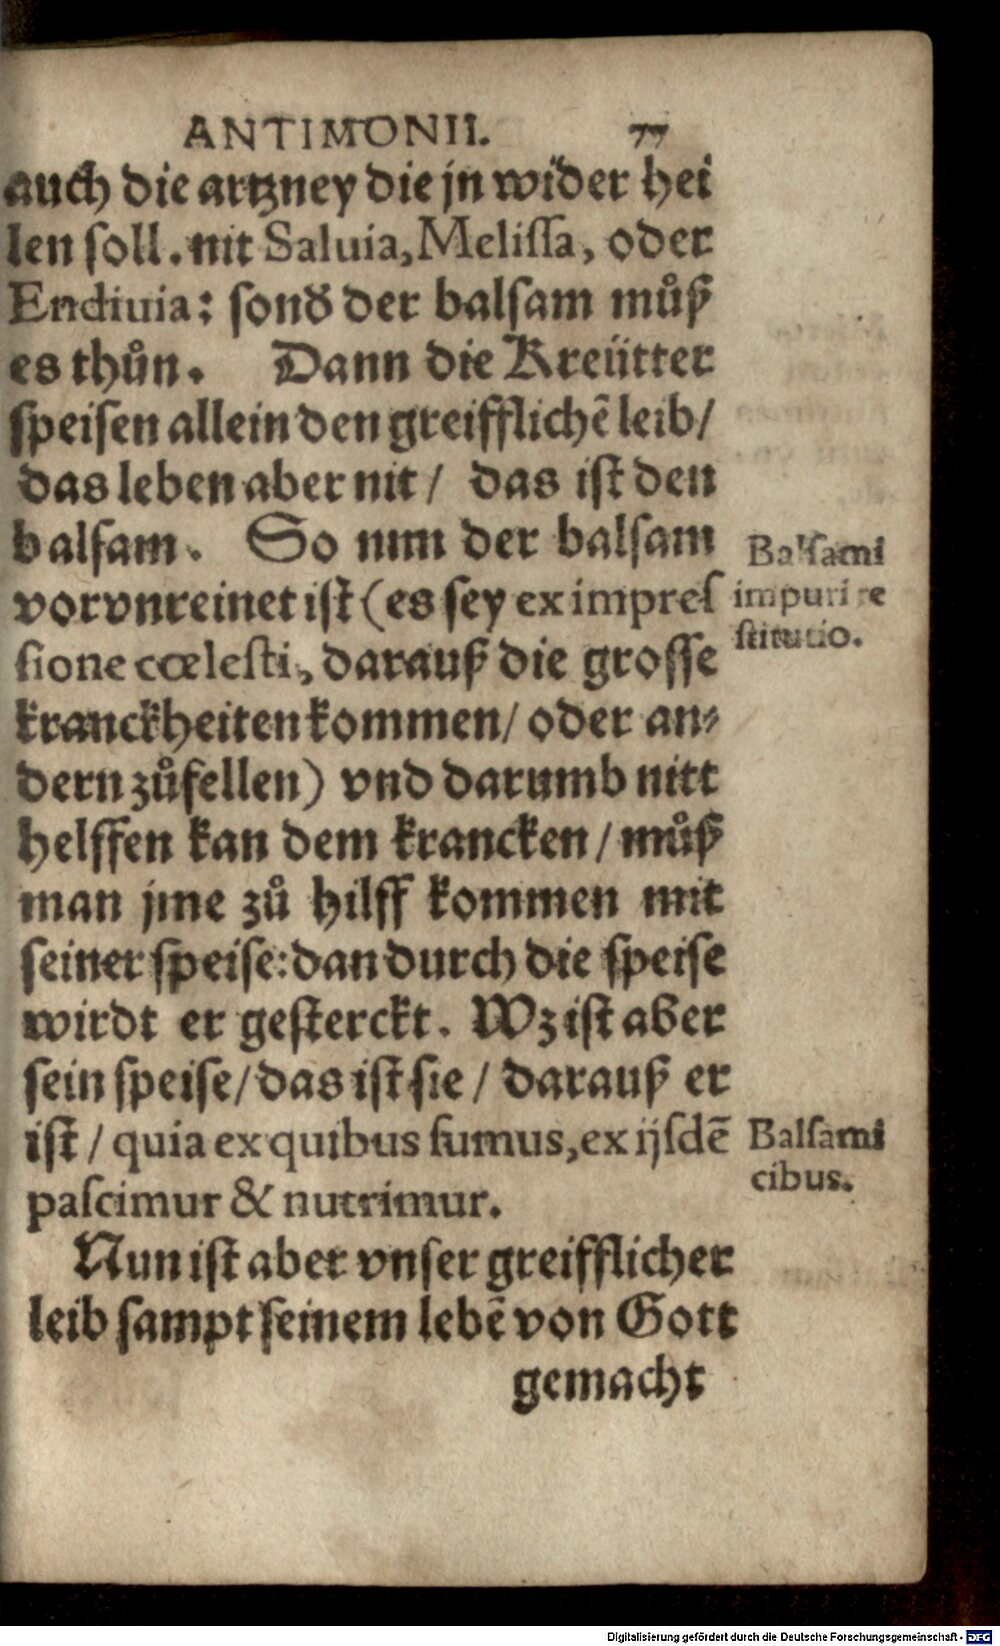 ANTIMONII. 77
auch die artzney die jn wider hei
len soll. nit Saluia, Melissa, oder
Endiuia: sonđ der balsam můß
es thůn. Dann die Kreütter
speisen allein den greifflichẽ leib/
das leben aber nit/ das ist den
balsam. So nun der balsam
vorvnreinet ist (es sey ex impreſ
sione cœlesti, darauß die grosse
kranckheiten kommen/ oder an⸗
dern zůfellen) vnd darumb nitt
helffen kan dem krancken/ můß
man jme zů hilff kommen mit
seiner speise: dan durch die speise
wirdt er gesterckt. Wz ist aber
sein speise/ das ist sie/ darauß er
ist/ quia ex quibus sumus, ex ijsdẽ
pascimur & nutrimur.
Nun ist aber vnser greifflicher
leib sampt seinem lebẽ von Gott
gemacht
Balsami
impuri re
stitutio.
Balsami
cibus.
Digitalisierung gefördert durch die Deutsche Forschungsgemeinschaft - DFG